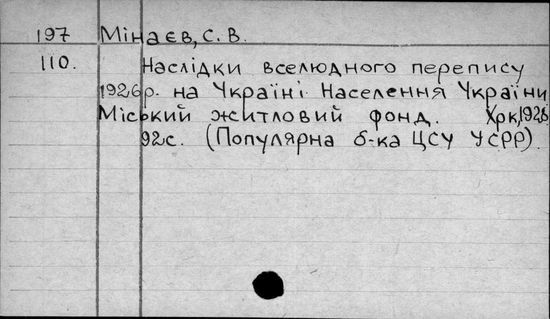 197 Мінаєв, С. В.
110. Наслідки вселюдного перепису
1926р. на Україні Населення України
Міський житловий фонд. Хрк, 1928
92с. (Популярна б-ка ЦСУ УСРР).